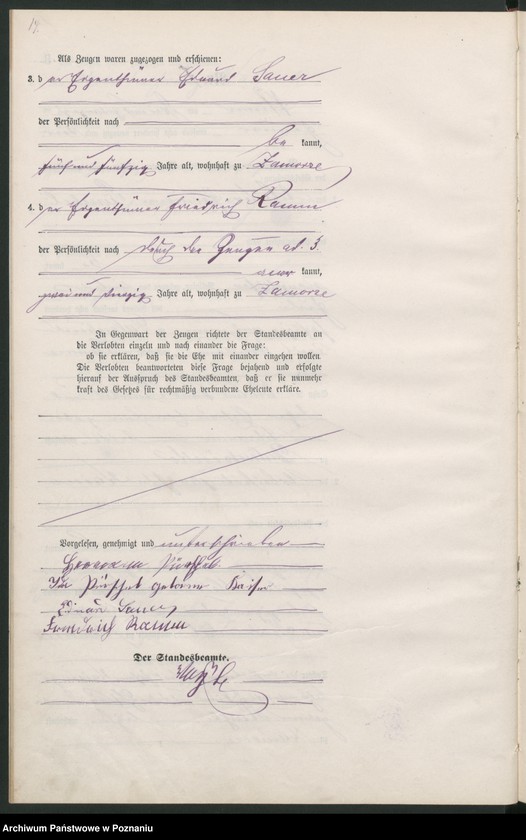 17.
Als Zeugen waren zugezogen und erschienen:
3. der Eigenthümer Eduard Sauer
der Persönlichkeit nach
bekannt,
fünfund fünfzig Jahre alt, wohnhaft zu Zamorze
4. der Eigenthümer Friedrich Ramm
der Persönlichkeit nach durch den Zeugen ad. 3.
kannt,
zwei und dreizig Jahre alt, wohnhaft zu Zamorze
In Gegenwart der Zeugen richtete der Standesbeamte an
die Verlobten einzeln und nach einander die Frage:
ob sie erklären, daß sie die Ehe mit einander eingehen wollen
Die Verlobten beantworteten diese Frage bejahend und erfolgte
hierauf der Ausspruch des Standesbeamten, daß er sie nunmehr
kraft des Gesetzes für rechtmäßig verbundene Eheleute erkläre.
Vorgelesen, genehmigt und unterschrieben
Hermann
geborene
Eduard Sauer
Friedrich Ramm
Der Standesbeamte.
Archiwum Państwowe w Poznaniu